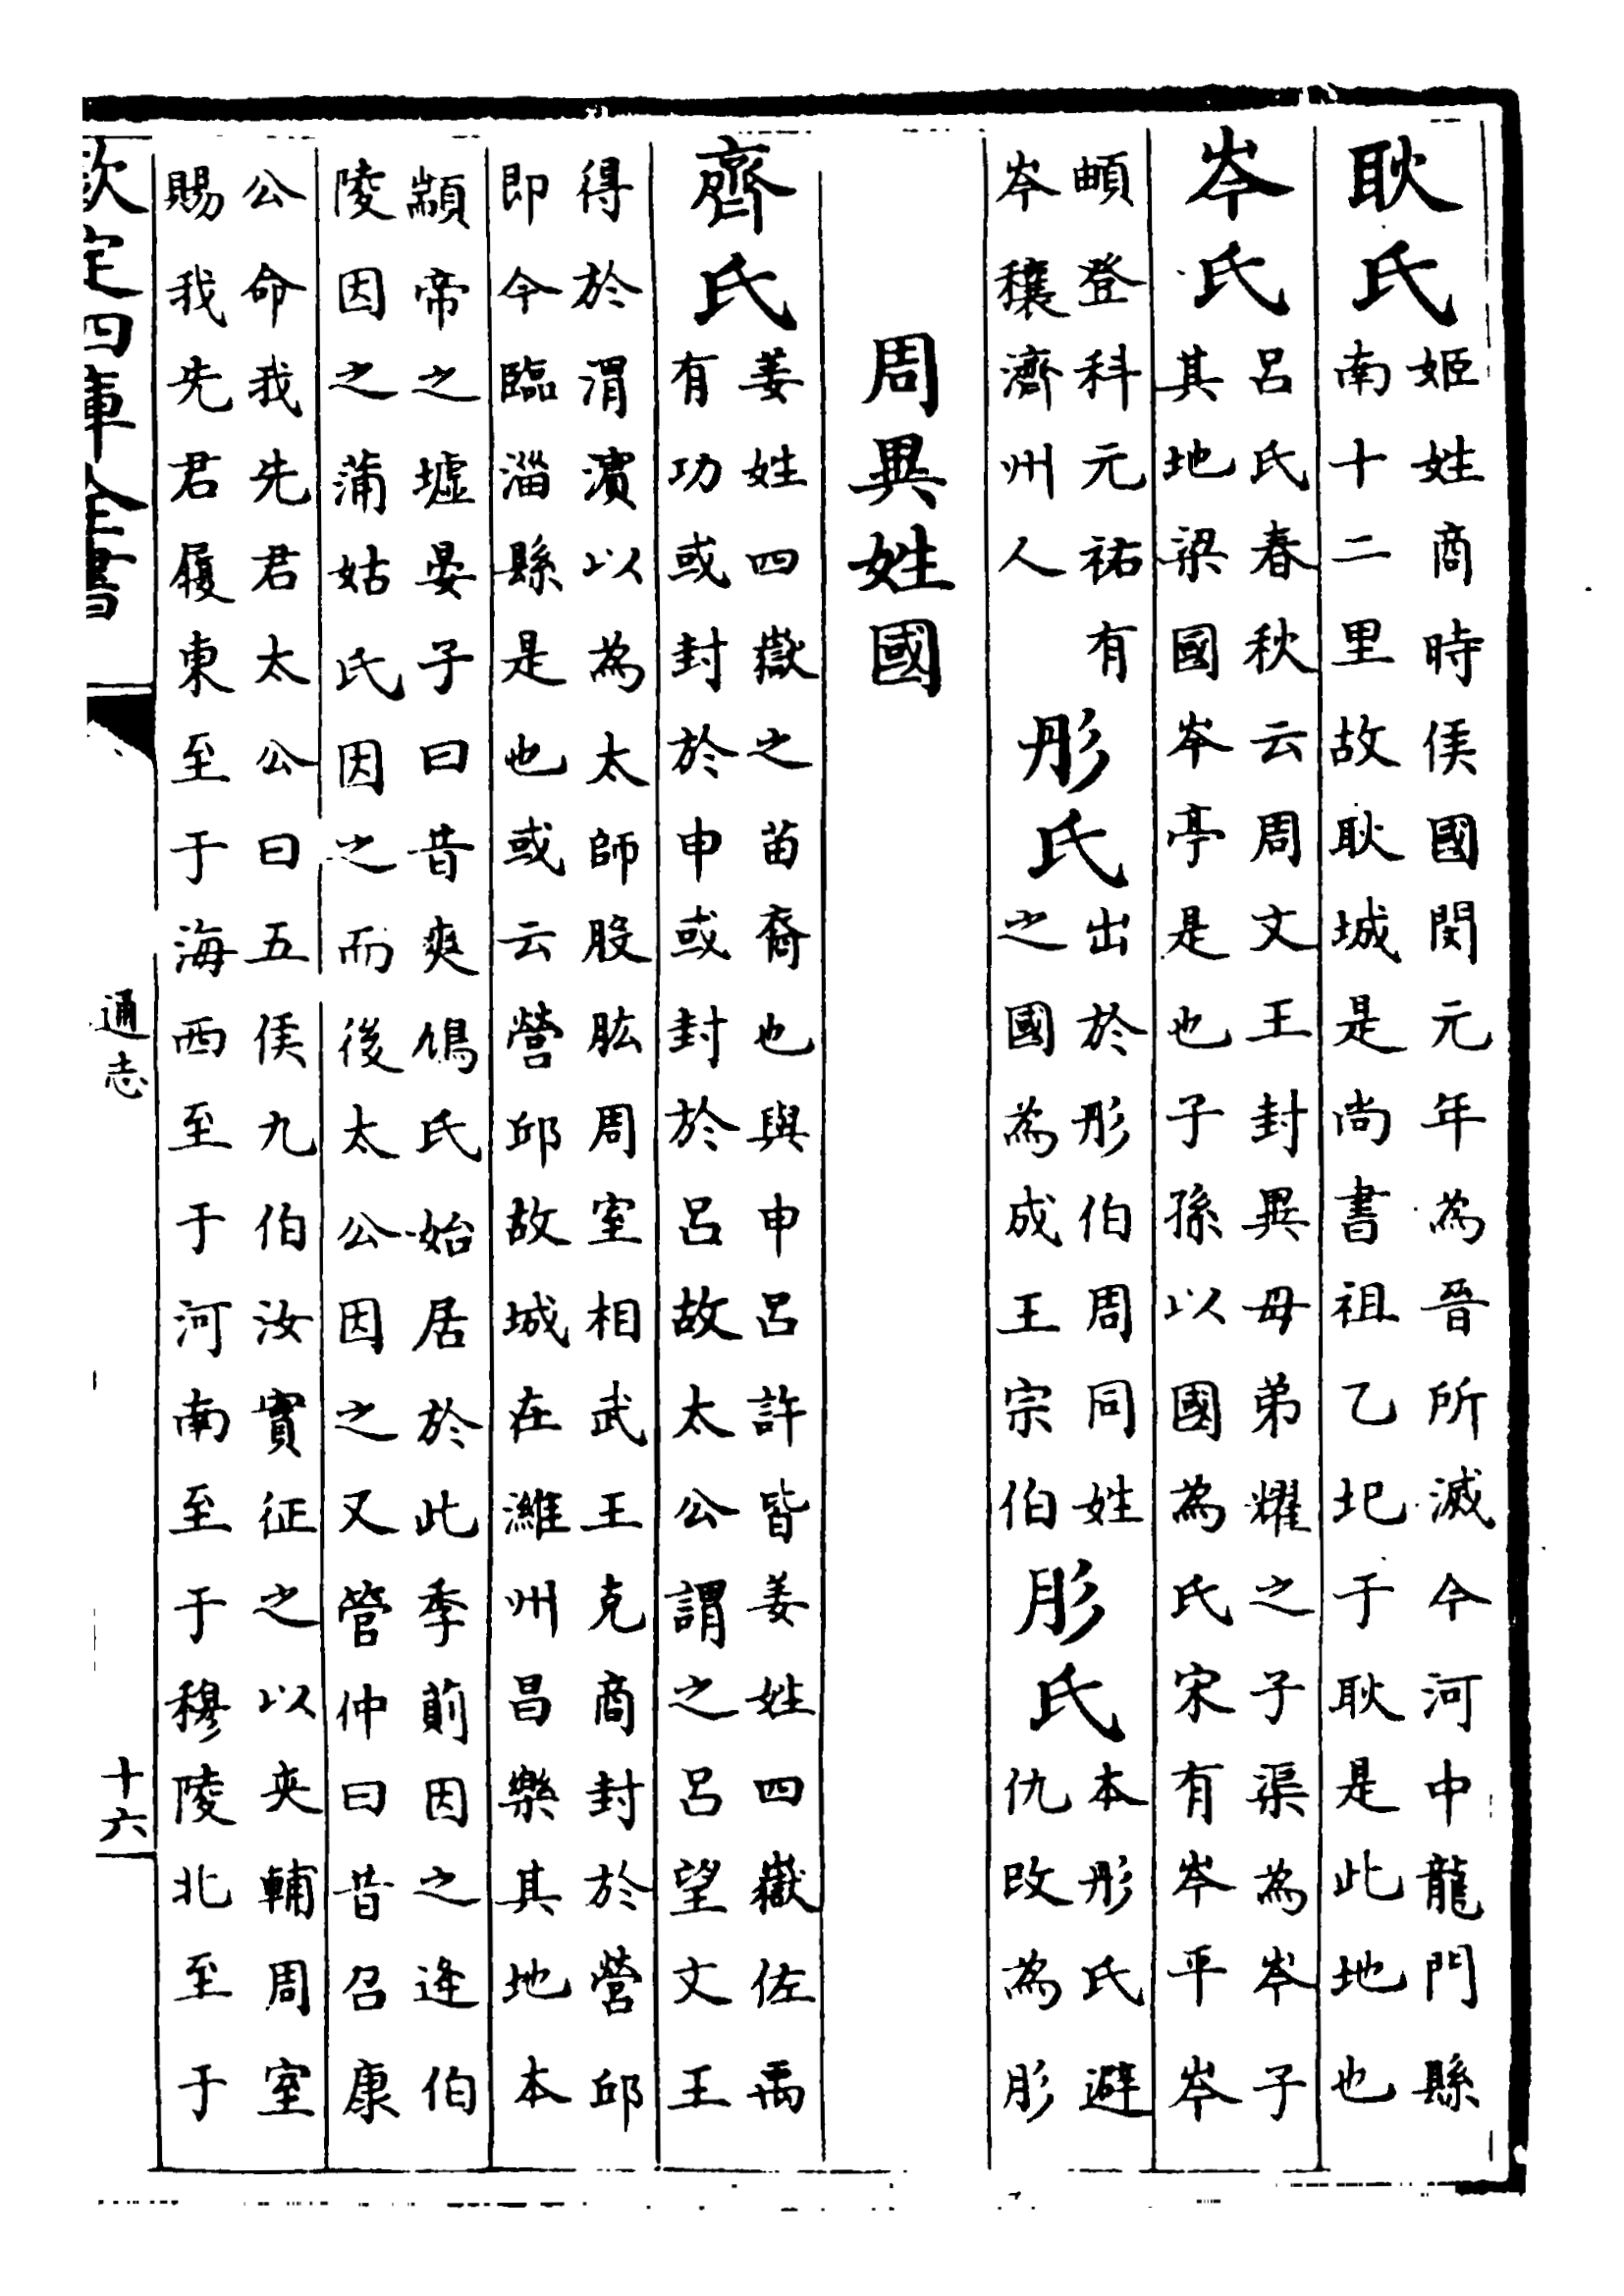 耿氏
姬姓商時侯國閔元年為晉所滅今河中龍門縣
南十二里故耿城是尚書祖乙圯于耿是此地也
岑氏
呂氏春秋云周文王封異母弟耀之子渠為岑子
其地梁國岑亭是也子孫以國為氏宋有岑平岑
頔登科元祐有
岑穰濟州人
彤氏
出於彤伯周同姓
之國為成王宗伯
肜氏
本彤氏避
仇改為肜
周異姓國
齊氏
姜姓四嶽之苗裔也與申呂許皆姜姓四嶽佐禹
有功或封於申或封於呂故太公謂之呂望文王
得於渭濱以為太師股肱周室相武王克商封於營邱
即今臨淄縣是也或云營邱故城在濰州昌樂其地本
顓帝之墟晏子曰昔爽鳩氏始居於此季萴因之逄伯
陵因之蒲姑氏因之而後太公因之又管仲曰昔召康
公命我先君太公曰五侯九伯汝實征之以夾輔周室
賜我先君履東至于海西至于河南至于穆陵北至于
欽定四庫全書
通志
十六